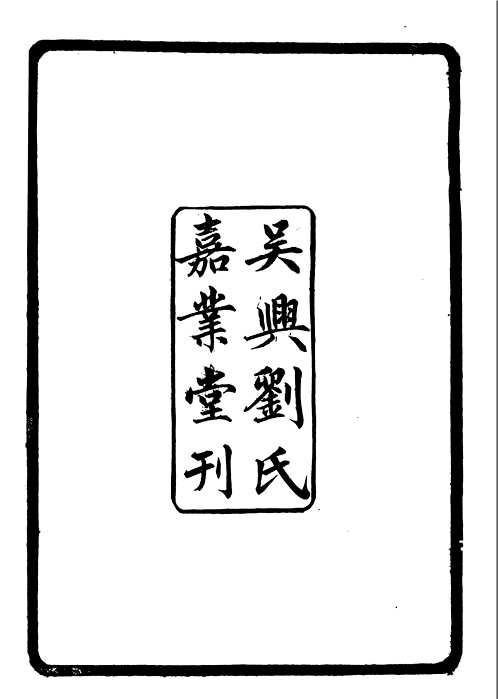 吴興劉氏
嘉業堂刊